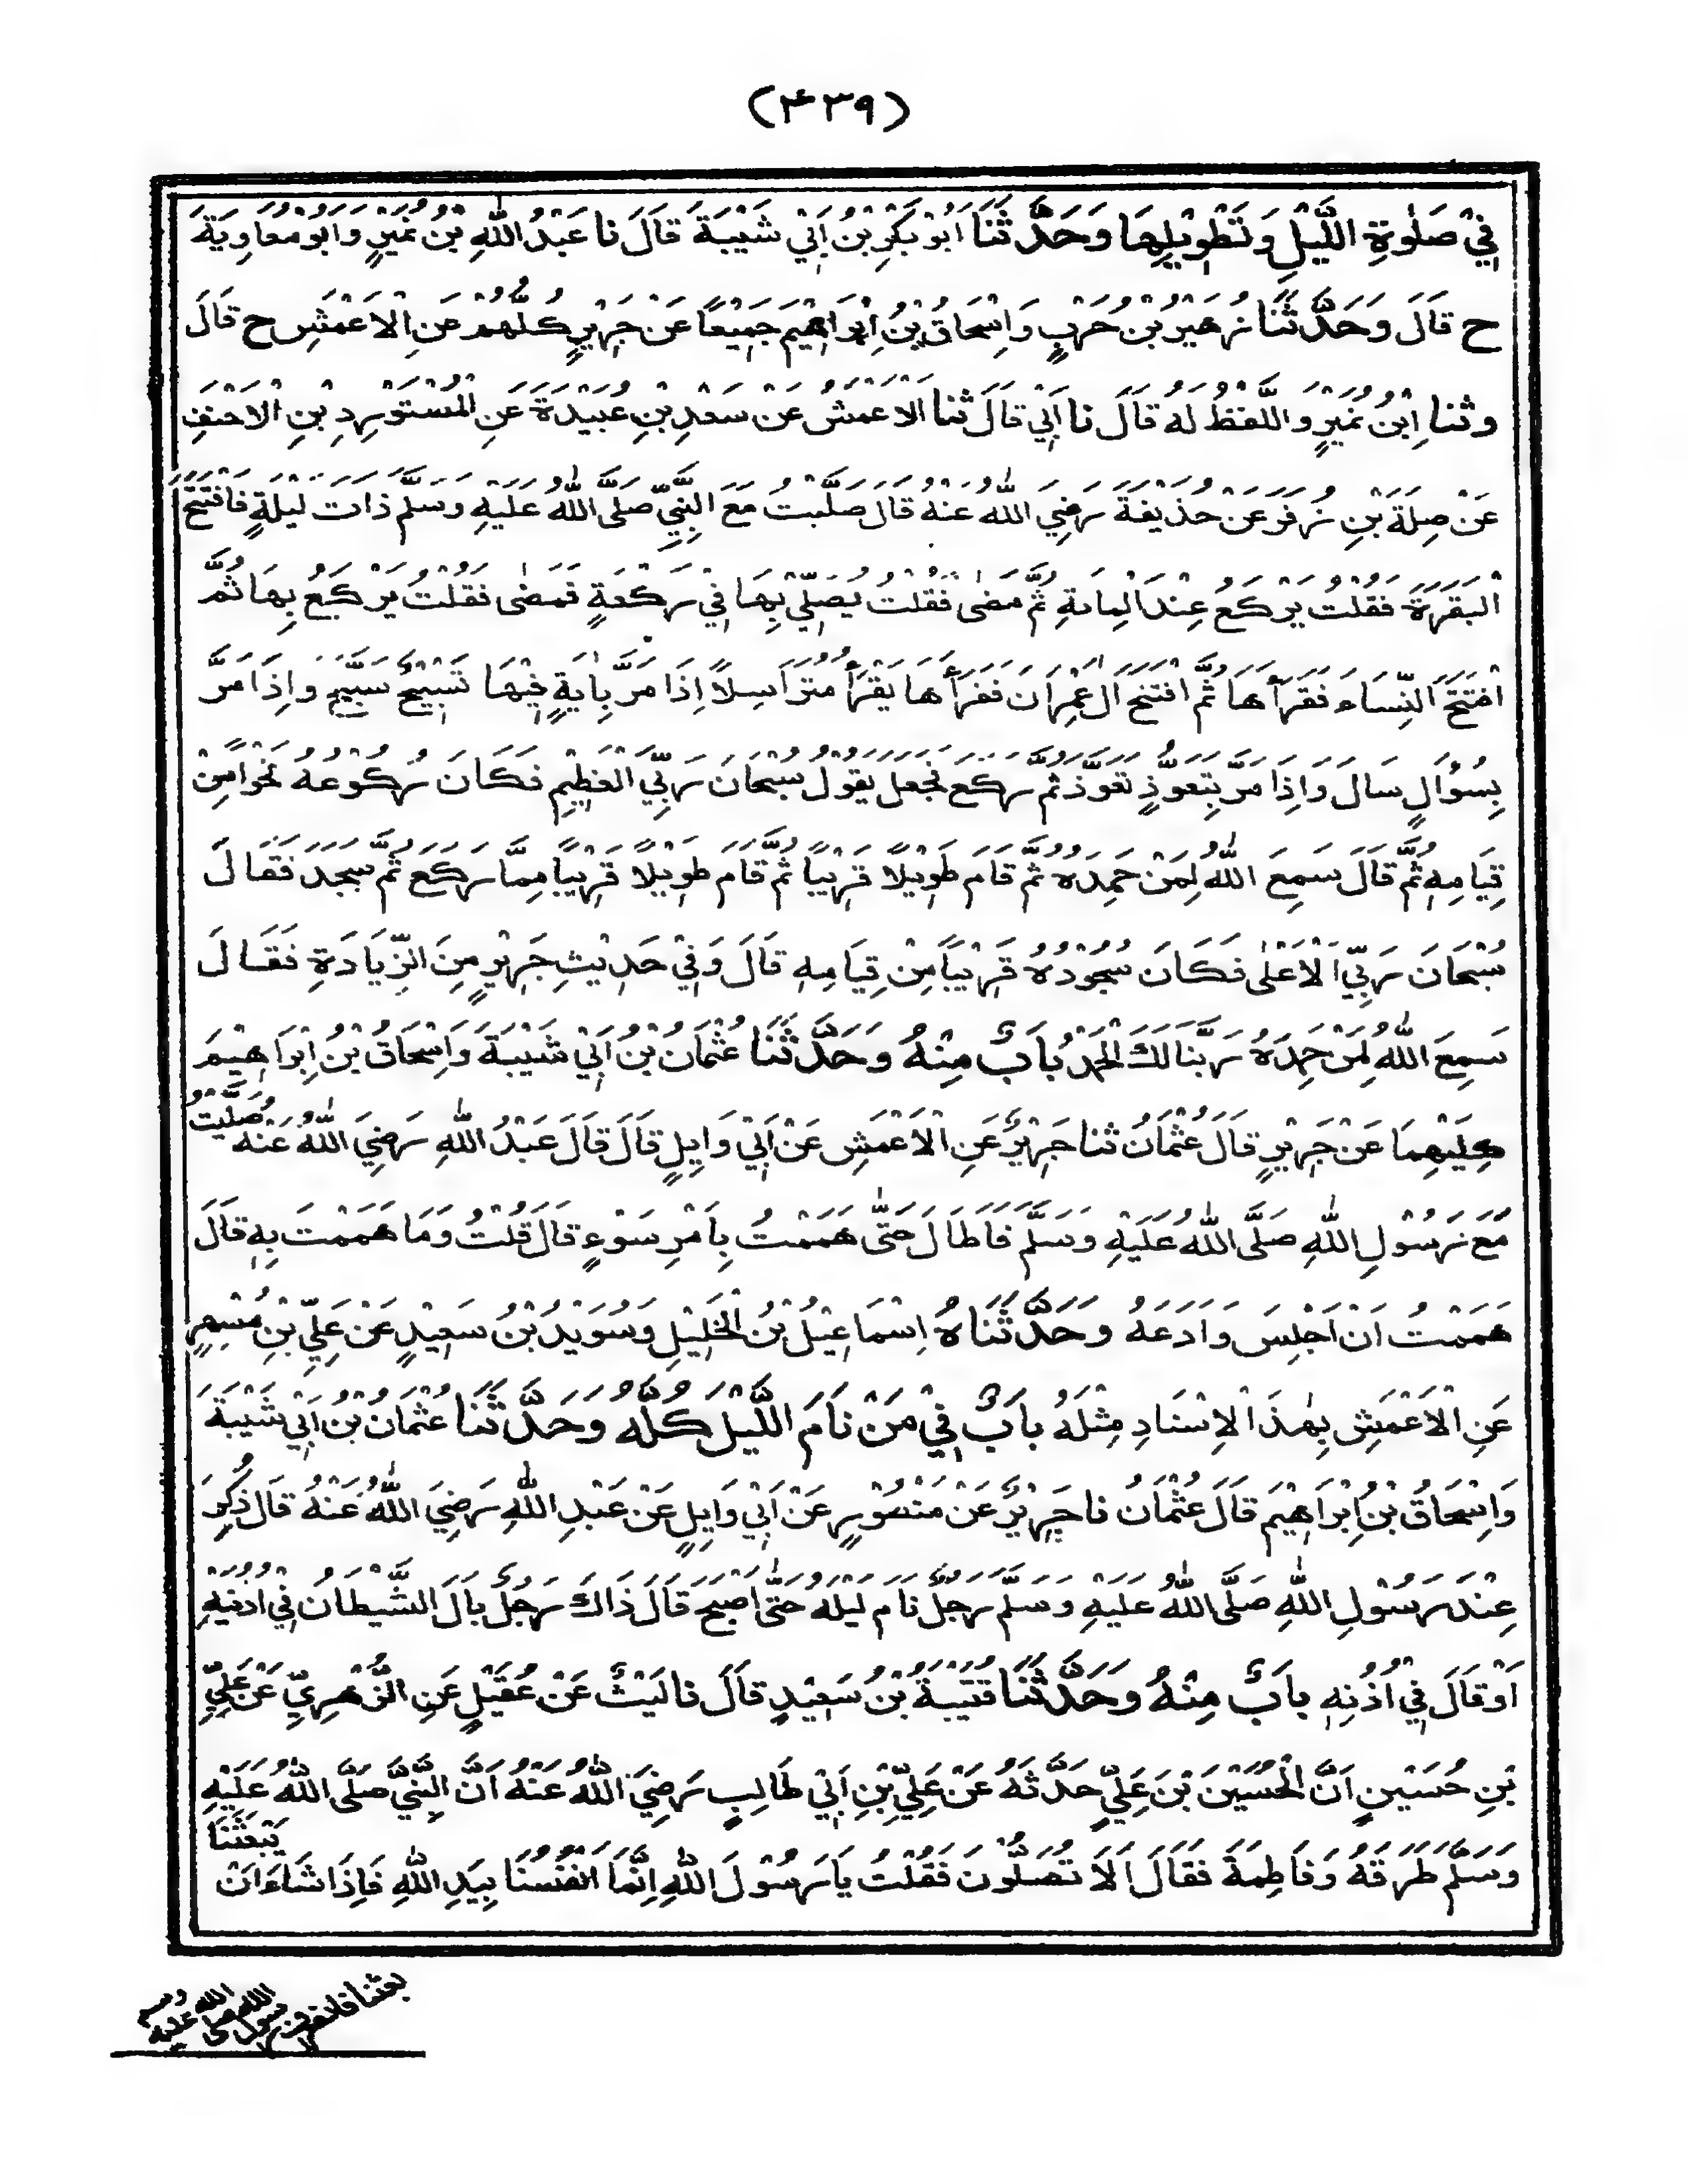 (۴۳۹)
فِيْ صَلٰوةِ اللَّيْلِ وَتَطْوِيْلِهَا وَحَدَّثَنَا اَبُوْ بَكْرِ بْنُ اَبِيْ شَيْبَةَ قَالَ نَا عَبْدُ اللّٰهِ بْنُ نُمَيْرٍ وَاَبُوْ مُعَاوِيَةَ
ح قَالَ وَحَدَّثَنَا زُهَيْرُ بْنُ حَرْبٍ وَاِسْحَاقُ بْنُ اِبْرَاهِيْمَ جَمِيْعًا عَنْ جَرِيْرٍ كُلُّهُمْ عَنِ الْاَعْمَشِ ح قَالَ
وثنا اِبْنُ نُمَيْرٍ وَاللَّفْظُ لَهُ قَالَ نا اَبِيْ قَالَ ثنا الْاَعْمَشُ عَنْ سَعْدِ بْنِ عُبَيْدَةَ عَنِ الْمُسْتَوْرِدِ بْنِ الْاَحْنَفِ
عَنْ صِلَةَ بْنِ زُفَرَ عَنْ حُذَيْفَةَ رَضِيَ اللّٰهُ عَنْهُ قَالَ صَلَّيْتُ مَعَ النَّبِيِّ صَلَّى اللّٰهُ عَلَيْهِ وَسَلَّمَ ذَاتَ لَيْلَةٍ فَافْتَتَحَ
الْبَقَرَةَ فَقُلْتُ يَرْكَعُ عِنْدَ الْمِائَةِ ثُمَّ مَضٰى فَقُلْتُ يُصَلِّيْ بِهَا فِيْ رَكْعَةٍ فَمَضٰى فَقُلْتُ يَرْكَعُ بِهَا ثُمَّ
افْتَتَحَ النِّسَاءَ فَقَرَأَهَا ثُمَّ افْتَتَحَ اٰلَ عِمْرَانَ فَقَرَأَهَا يَقْرَأُ مُتَرَاسِلًا اِذَا مَرَّ بِاٰيَةٍ فِيْهَا تَسْبِيْحٌ سَبَّحَ وَاِذَا مَرَّ
بِسُؤَالٍ سَاَلَ وَاِذَا مَرَّ بِتَعَوُّذٍ تَعَوَّذَ ثُمَّ رَكَعَ فَجَعَلَ يَقُوْلُ سُبْحَانَ رَبِّيَ الْعَظِيْمِ فَكَانَ رُكُوْعُهُ نَحْوًا مِنْ
قِيَامِهِ ثُمَّ قَالَ سَمِعَ اللّٰهُ لِمَنْ حَمِدَهُ ثُمَّ قَامَ طَوِيْلًا قَرِيْبًا ثُمَّ قَامَ طَوِيْلًا قَرِيْبًا مِمَّا رَكَعَ ثُمَّ سَجَدَ فَقَالَ
سُبْحَانَ رَبِّيَ الْاَعْلٰى فَكَانَ سُجُوْدُهُ قَرِيْبًا مِنْ قِيَامِهِ قَالَ وَفِيْ حَدِيْثِ جَرِيْرٍ مِنَ الزِّيَادَةِ فَقَالَ
سَمِعَ اللّٰهُ لِمَنْ حَمِدَهُ رَبَّنَا لَكَ الْحَمْدُ بَابٌ مِنْهُ وَحَدَّثَنَا عُثْمَانُ بْنُ اَبِيْ شَيْبَةَ وَاِسْحَاقُ بْنُ اِبْرَاهِيْمَ
كِلَيْهِمَا عَنْ جَرِيْرٍ قَالَ عُثْمَانُ ثنا جَرِيْرٌ عَنِ الْاَعْمَشِ عَنْ اَبِيْ وَايِلٍ قَالَ قَالَ عَبْدُ اللّٰهِ رَضِيَ اللّٰهُ عَنْهُ صَلَّيْتُ
مَعَ رَسُوْلِ اللّٰهِ صَلَّى اللّٰهُ عَلَيْهِ وَسَلَّمَ فَاَطَالَ حَتّٰى هَمَمْتُ بِاَمْرِ سَوْءٍ قَالَ قُلْتُ وَمَا هَمَمْتَ بِهِ قَالَ
هَمَمْتُ اَنْ اَجْلِسَ وَاَدَعَهُ وَحَدَّثَنَاهُ اِسْمَاعِيْلُ بْنُ الْخَلِيْلِ وَسُوَيْدُ بْنُ سَعِيْدٍ عَنْ عَلِيِّ بْنِ مُسْهِرٍ
عَنِ الْاَعْمَشِ بِهٰذَا الْاِسْنَادِ مِثْلَهُ بَابٌ فِيْ مَنْ نَامَ اللَّيْلَ كُلَّهُ وَحَدَّثَنَا عُثْمَانُ بْنُ اَبِيْ شَيْبَةَ
وَاِسْحَاقُ بْنُ اِبْرَاهِيْمَ قَالَ عُثْمَانُ نا جَرِيْرٌ عَنْ مَنْصُوْرٍ عَنْ اَبِيْ وَايِلٍ عَنْ عَبْدِ اللّٰهِ رَضِيَ اللّٰهُ عَنْهُ قَالَ ذُكِرَ
عِنْدَ رَسُوْلِ اللّٰهِ صَلَّى اللّٰهُ عَلَيْهِ وَسَلَّمَ رَجُلٌ نَامَ لَيْلَهُ حَتّٰى اَصْبَحَ قَالَ ذَاكَ رَجُلٌ بَالَ الشَّيْطَانُ فِيْ اُذُنَيْهِ
اَوْ قَالَ فِيْ اُذُنِهِ بَابٌ مِنْهُ وَحَدَّثَنَا قُتَيْبَةُ بْنُ سَعِيْدٍ قَالَ نا لَيْثٌ عَنْ عُقَيْلٍ عَنِ الزُّهْرِيِّ عَنْ عَلِيِّ
بْنِ حُسَيْنٍ اَنَّ الْحُسَيْنَ بْنَ عَلِيٍّ حَدَّثَهُ عَنْ عَلِيِّ بْنِ اَبِيْ طَالِبٍ رَضِيَ اللّٰهُ عَنْهُ اَنَّ النَّبِيَّ صَلَّى اللّٰهُ عَلَيْهِ
وَسَلَّمَ طَرَقَهُ وَفَاطِمَةَ فَقَالَ اَلَا تُصَلُّوْنَ فَقُلْتُ يَا رَسُوْلَ اللّٰهِ اِنَّمَا اَنْفُسُنَا بِيَدِ اللّٰهِ فَاِذَا شَاءَ اَنْ يَبْعَثَنَا
بعثنا فانصرف رسول الله صلى الله عليه وسلم